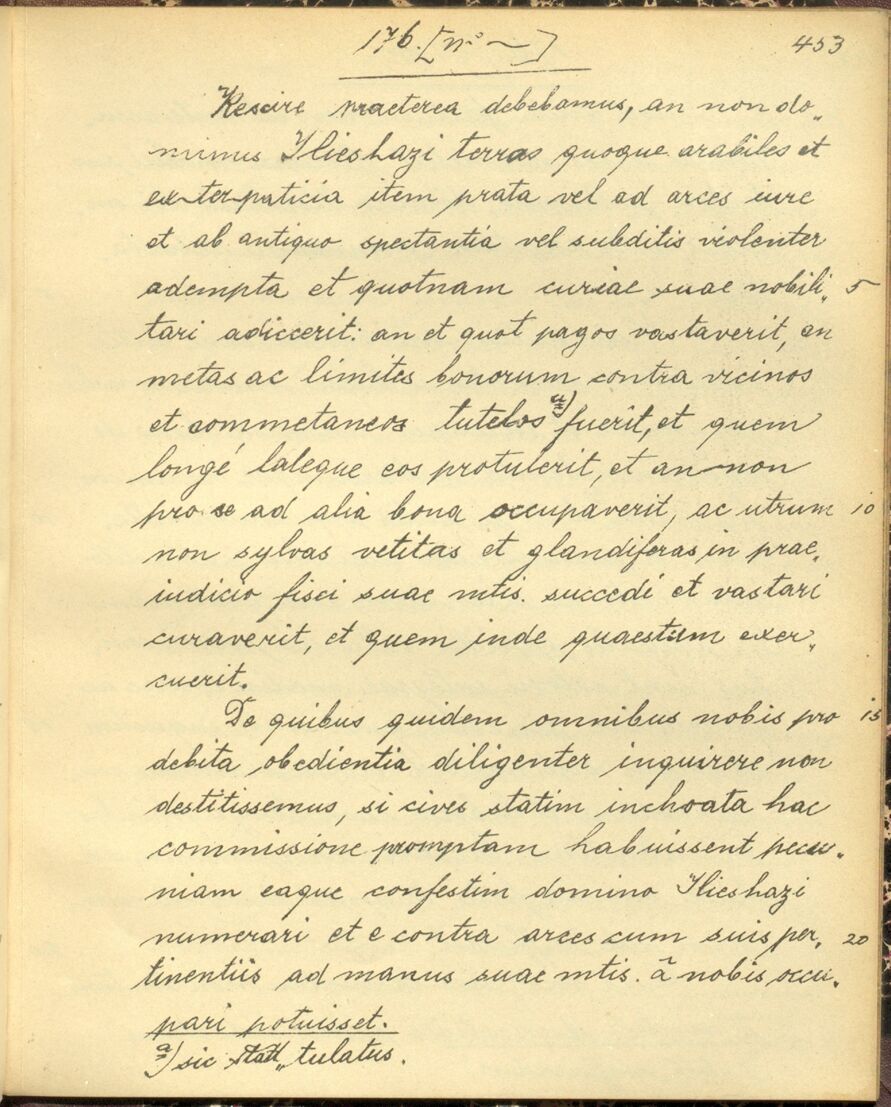 176. [nº ~] 453
Rescire praeterea debebamus, an non do„
minus Ilieshazi terras quoque arabiles et
exterpaticia item prata vel ad arces iure
et ab antiquo spectantia vel subditis violenter
adempta et quotnam curiae suae nobili„ 5
tari adiecerit: an et quot pagos vastaverit, an
metas ac limites bonorum contra vicinos
et commetaneos tutelos a) fuerit, et quem
longé lateque eos protulerit, et an non
pro se ad alia bona occupaverit, ac utrum 10
non sylvas vetitas et glandiferas in prae„
iudicio fisci suae mtis. succedi et vastari
curaverit, et quem inde quaestum exer„
cuerit.
De quibus quidem omnibus nobis pro 15
debita obedientia diligenter inquirere non
destitissemus, si cives statim inchoata hac
commissione promptam habuissent pecu„
niam eaque confestim domino Ilieshazi
numerari et e contra arces cum suis per„ 20
tinentiis ad manus suae mtis. ā nobis occu„
pari potuisset.
a) sic „tulatus.